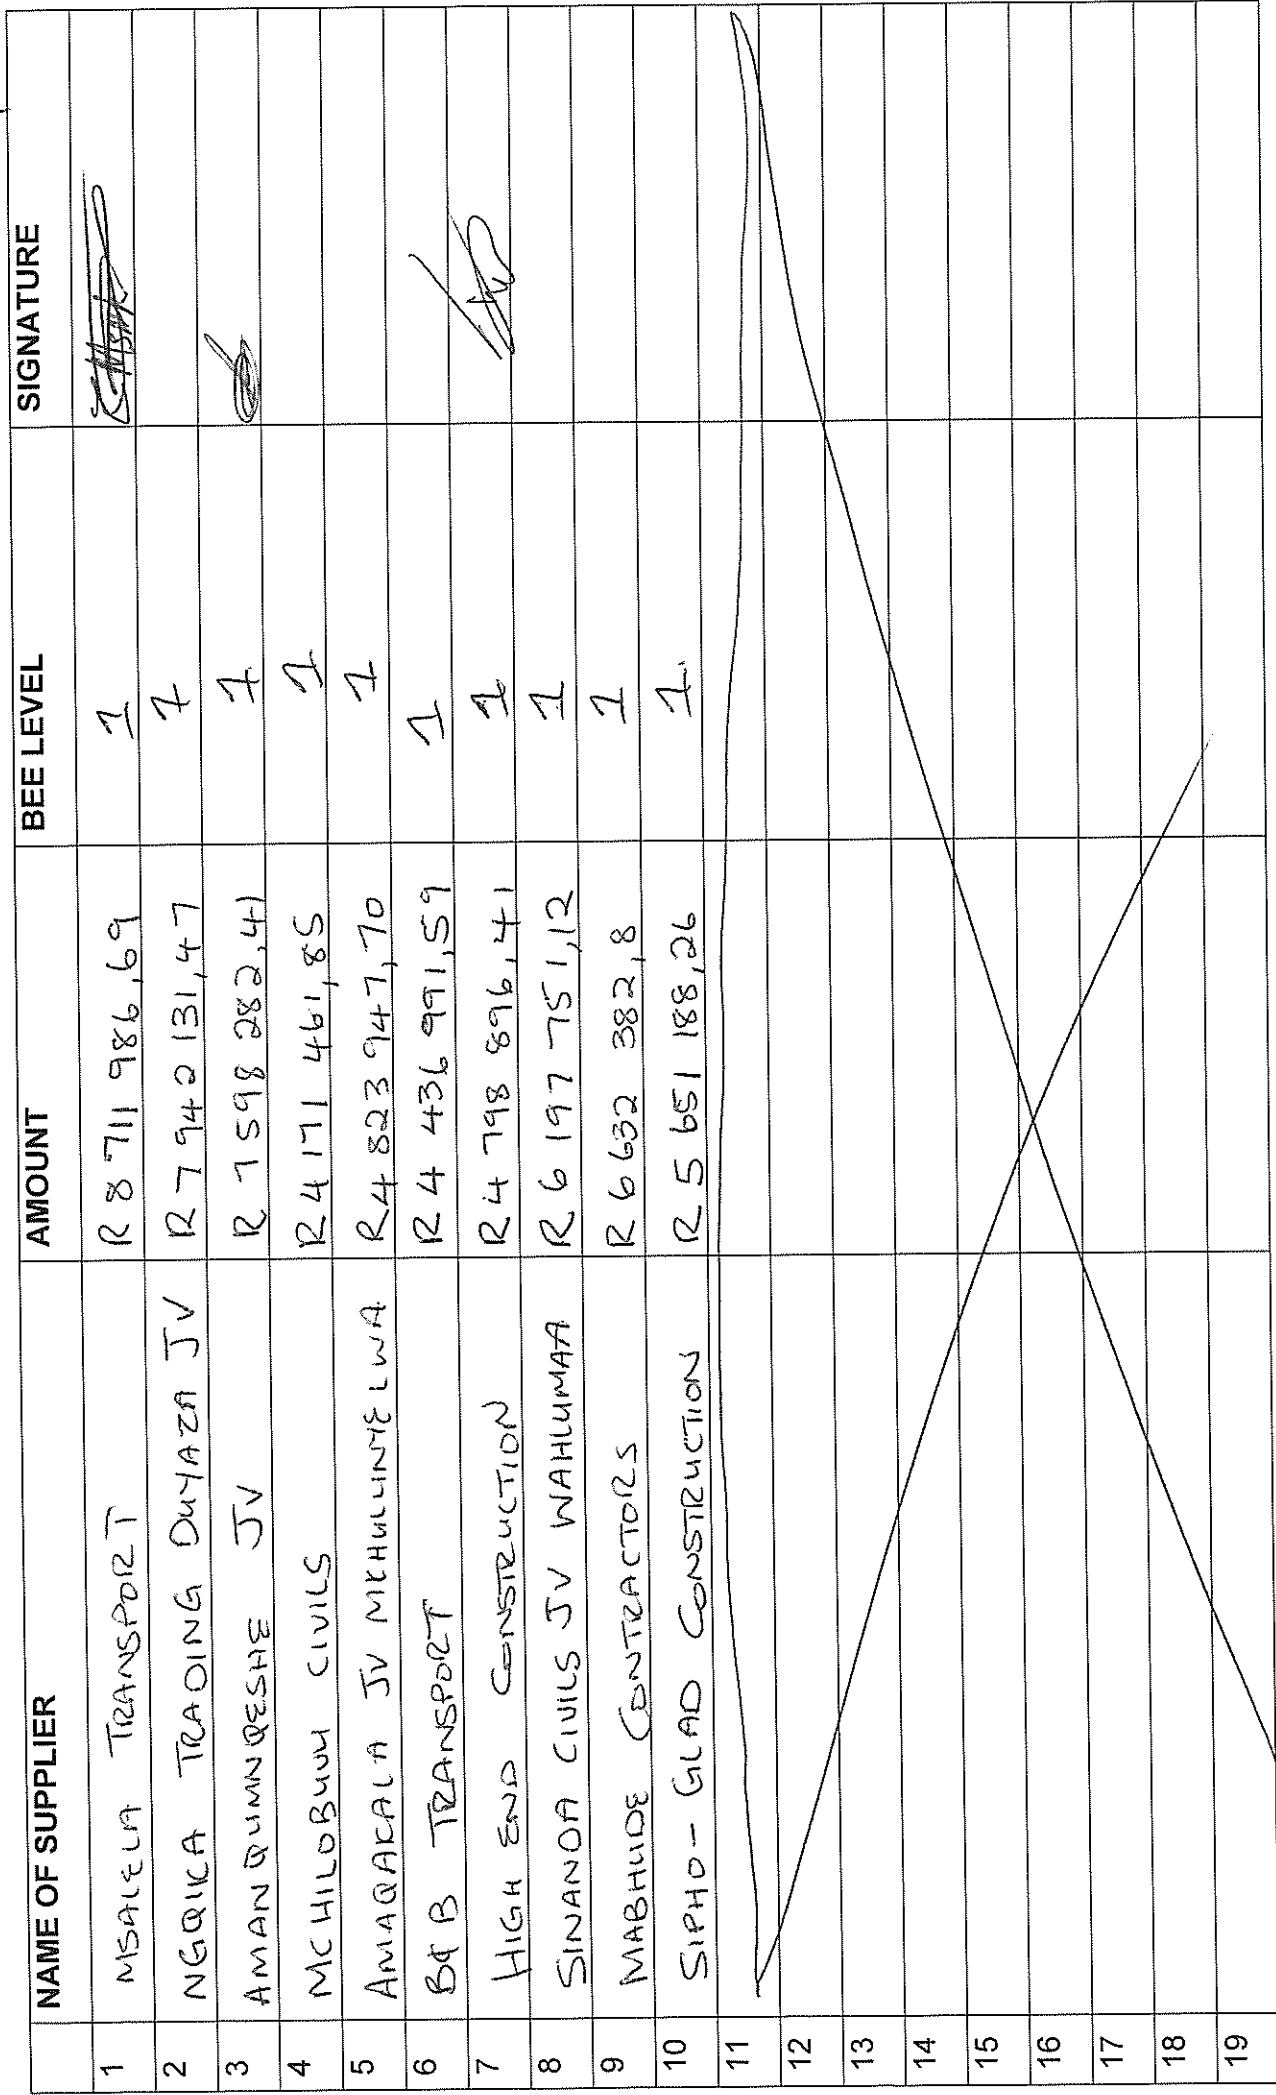 NAME OF SUPPLIER AMOUNT BEE LEVEL SIGNATURE
1 MSALELA TRANSPORT R 8 711 986,69 1
2 NGQIKA TRADING DUYAZA JV R 7 942 131,47 1
3 AMANQUMNQESHE JV R 7 598 282,41 1
4 MCHILOBUVU CIVILS R 4 171 461,85 1
5 AMAQAKALA JV MKHULUNYELWA R 4 823 947,70 1
6 B&B TRANSPORT R 4 436 991,59 1
7 HIGH END CONSTRUCTION R 4 798 896,41 1
8 SINANDA CIVILS JV WAHLUMAA R 6 197 751,12 1
9 MABHUDE CONTRACTORS R 6 632 382,8 1
10 SIPHO-GLAD CONSTRUCTION R 5 651 188,26 1.
11
12
13
14
15
16
17
18
19